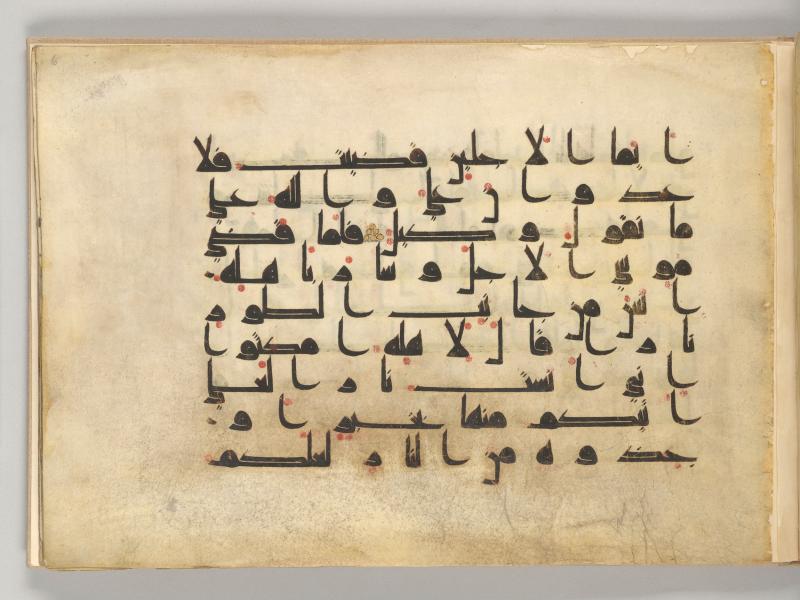 ايما الاجلين قضيت فلا
عدون علي والله علي
ما نقول وكيل فلما قضي
موسي الاجل وسار باهله
انس من جانب الطور
نارا قال لاهله امكثوا
اني انست نارا لعلي
اتيكم منها بخبر او
جذوه من النار لعلكم